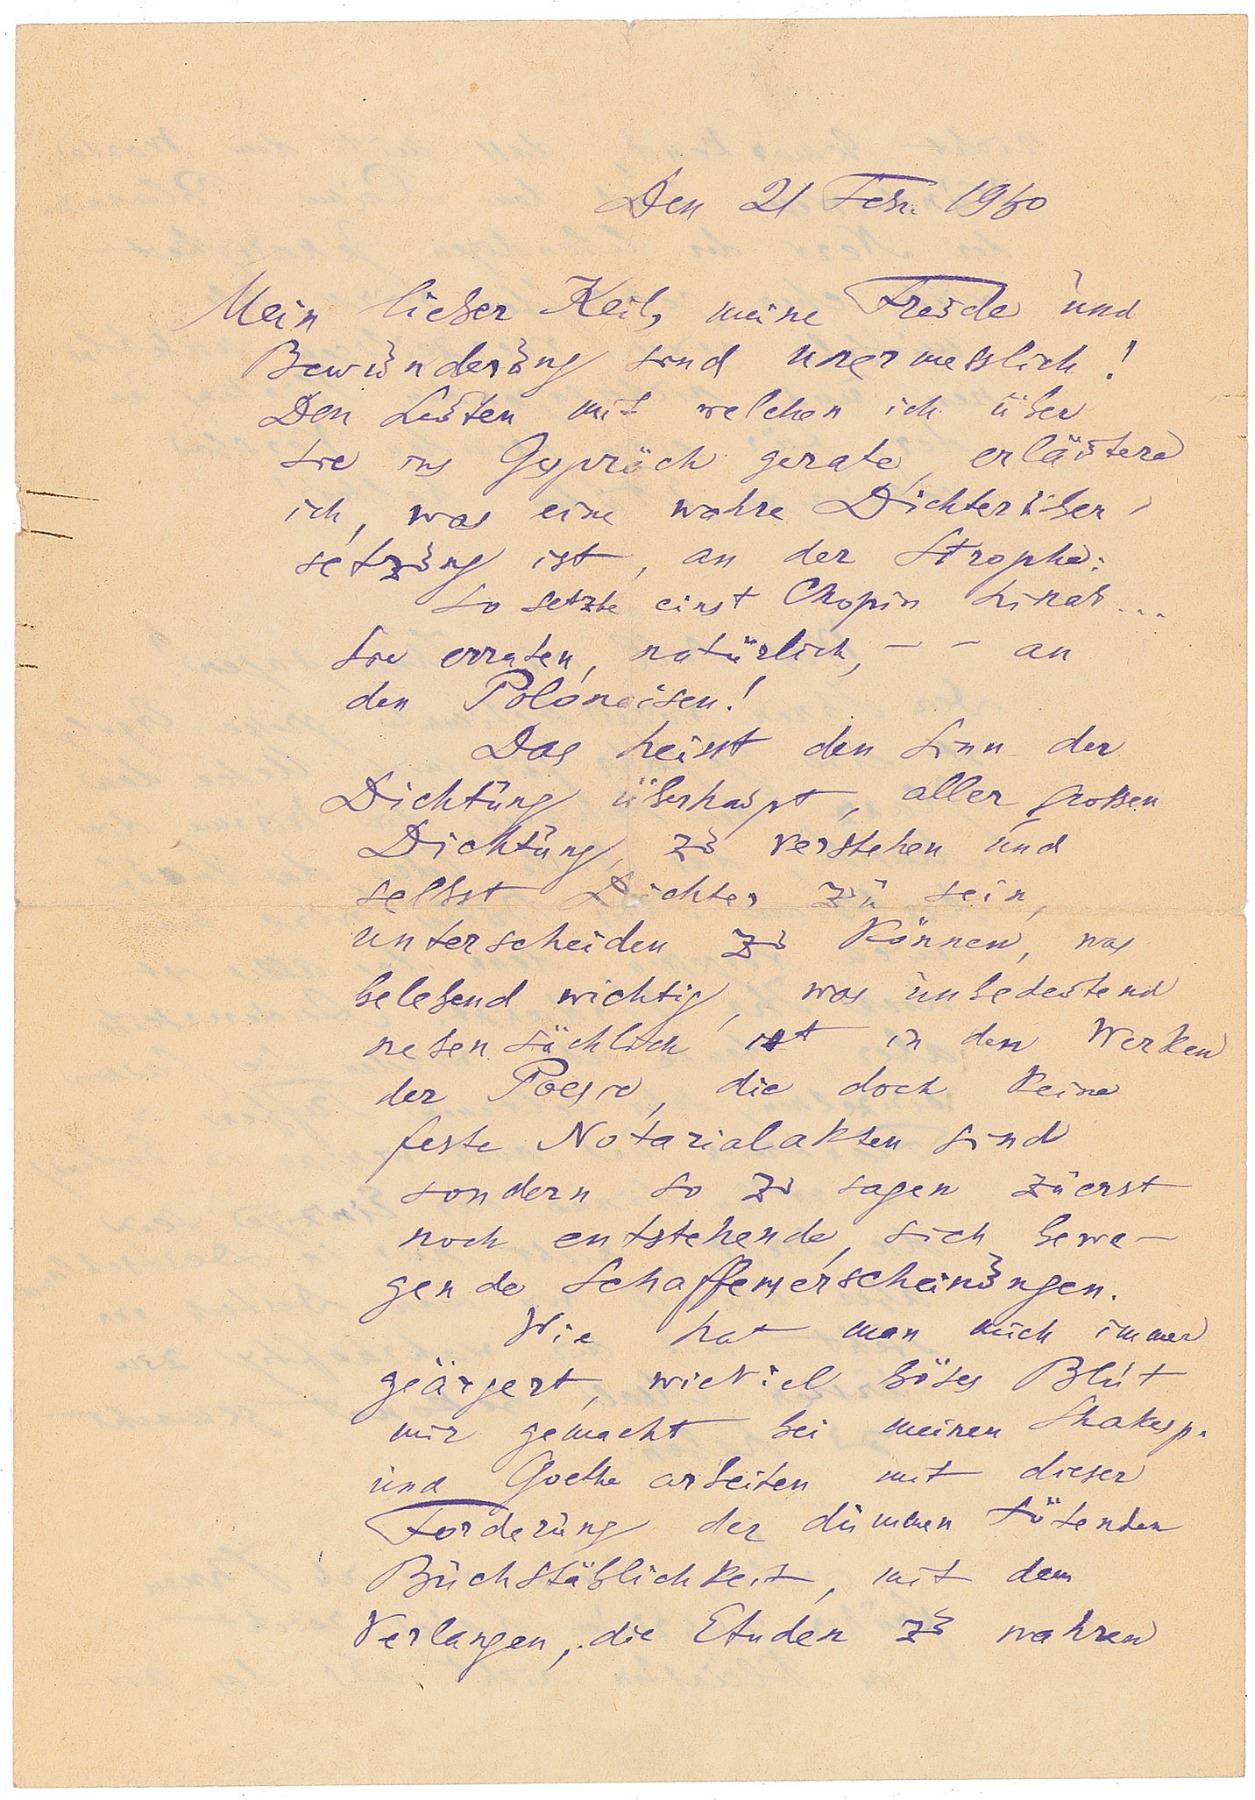 Den 21 Feb. 1960
Mein lieber Keil, meine Freude und
Bewunderung sind unermesslich!
Den Leuten mit welchen ich über
Sie ins Gespräch gerate, erläutere
ich, was eine wahre Dichterüber-
setzung ist, an der Strophe:
So setzte einst Chopin hinab...
Sie erraten, natürlich, – – an
den Polonaisen!
Das heisst den Sinn der
Dichtung überhaupt, aller großen
Dichtung, zu verstehen und
selbst Dichter zu sein,
unterscheiden zu können, was
belebend wichtig, was unbedeutend
nebensächlich ist in den Werken
der Poesie, die doch keine
feste Notarialakten sind
sondern so zu sagen zuerst
noch entstehende, sich bewe-
gende Schaffenserscheinungen.
Wie hat man mich immer
geärgert, wieviel böses Blut
mir gemacht bei meinen Shakesp.
und Goethe arbeiten mit dieser
Forderung der dummen tötenden
Buchstäblichkeit, mit dem
Verlangen, die Etuden zu wahren